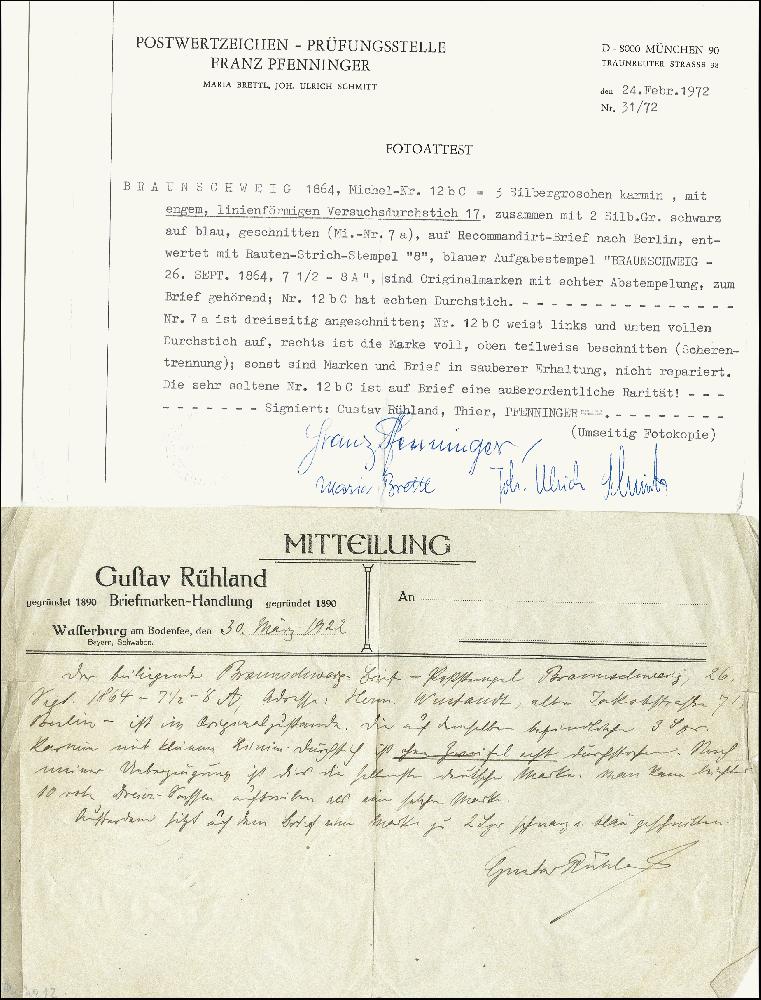 POSTWERTZEICHEN - PRÜFUNGSSTELLE
FRANZ PFENNINGER
MARIA BRETTL, JOH. ULRICH SCHMITT
D - 8000 MÜNCHEN 90
TRAUNREUTER STRASSE 98
den 24.Febr.1972
Nr. 31/72
FOTOATTEST
B R A U N S C H W E I G 1864, Michel-Nr. 12 b C = 3 Silbergroschen karmin , mit
engem, linienförmigen Versuchsdurchstich 17, zusammen mit 2 Silb.Gr. schwarz
auf blau, geschnitten (Mi.-Nr. 7 a), auf Recommandirt-Brief nach Berlin, ent-
wertet mit Rauten-Strich-Stempel "8", blauer Aufgabestempel "BRAUNSCHWEIG -
26. SEPT. 1864, 7 1/2 - 8 A", sind Originalmarken mit echter Abstempelung, zum
Brief gehörend; Nr. 12 b C hat echten Durchstich. - - - - - - - - - - - - - - -
Nr. 7 a ist dreiseitig angeschnitten; Nr. 12 b C weist links und unten vollen
Durchstich auf, rechts ist die Marke voll, oben teilweise beschnitten (Scheren-
trennung); sonst sind Marken und Brief in sauberer Erhaltung, nicht repariert.
Die sehr seltene Nr. 12 b C ist auf Brief eine außerordentliche Rarität! - - -
- - - - - - - Signiert: Gustav Rühland, Thier, PFENNINGER . - - - - - - - -
(Umseitig Fotokopie)
Franz Pfenninger
Maria Brettl Joh. Ulrich Schmitt
MITTEILUNG
Gustav Rühland
gegründet 1890 Briefmarken-Handlung gegründet 1890
An
Wasserburg am Bodensee, den 30. März 1922
Bayern, Schwaben.
Der beiliegende Braunschweig Brief - Poststempel Braunschweig, 26.
Sept. 1864 - 7½ - 8 A, Adresse: Herrn alte Jakobstrasse 71,
Berlin - ist im Originalzustande. Die auf demselben befindliche 3 Sgr.
karmin mit kleinem Linien-Durchstich ist ohne Zweifel echt durchstochen. Nach
meiner Überzeugung ist dies die seltenste deutsche Marke. Man kann leichter
10 rote Dreier Sachsen auftreiben als eine solche Marke.
Außerdem sitzt auf dem Brief eine Marke zu 2 Sgr schwarz a. blau geschnitten
Gustav Rühland